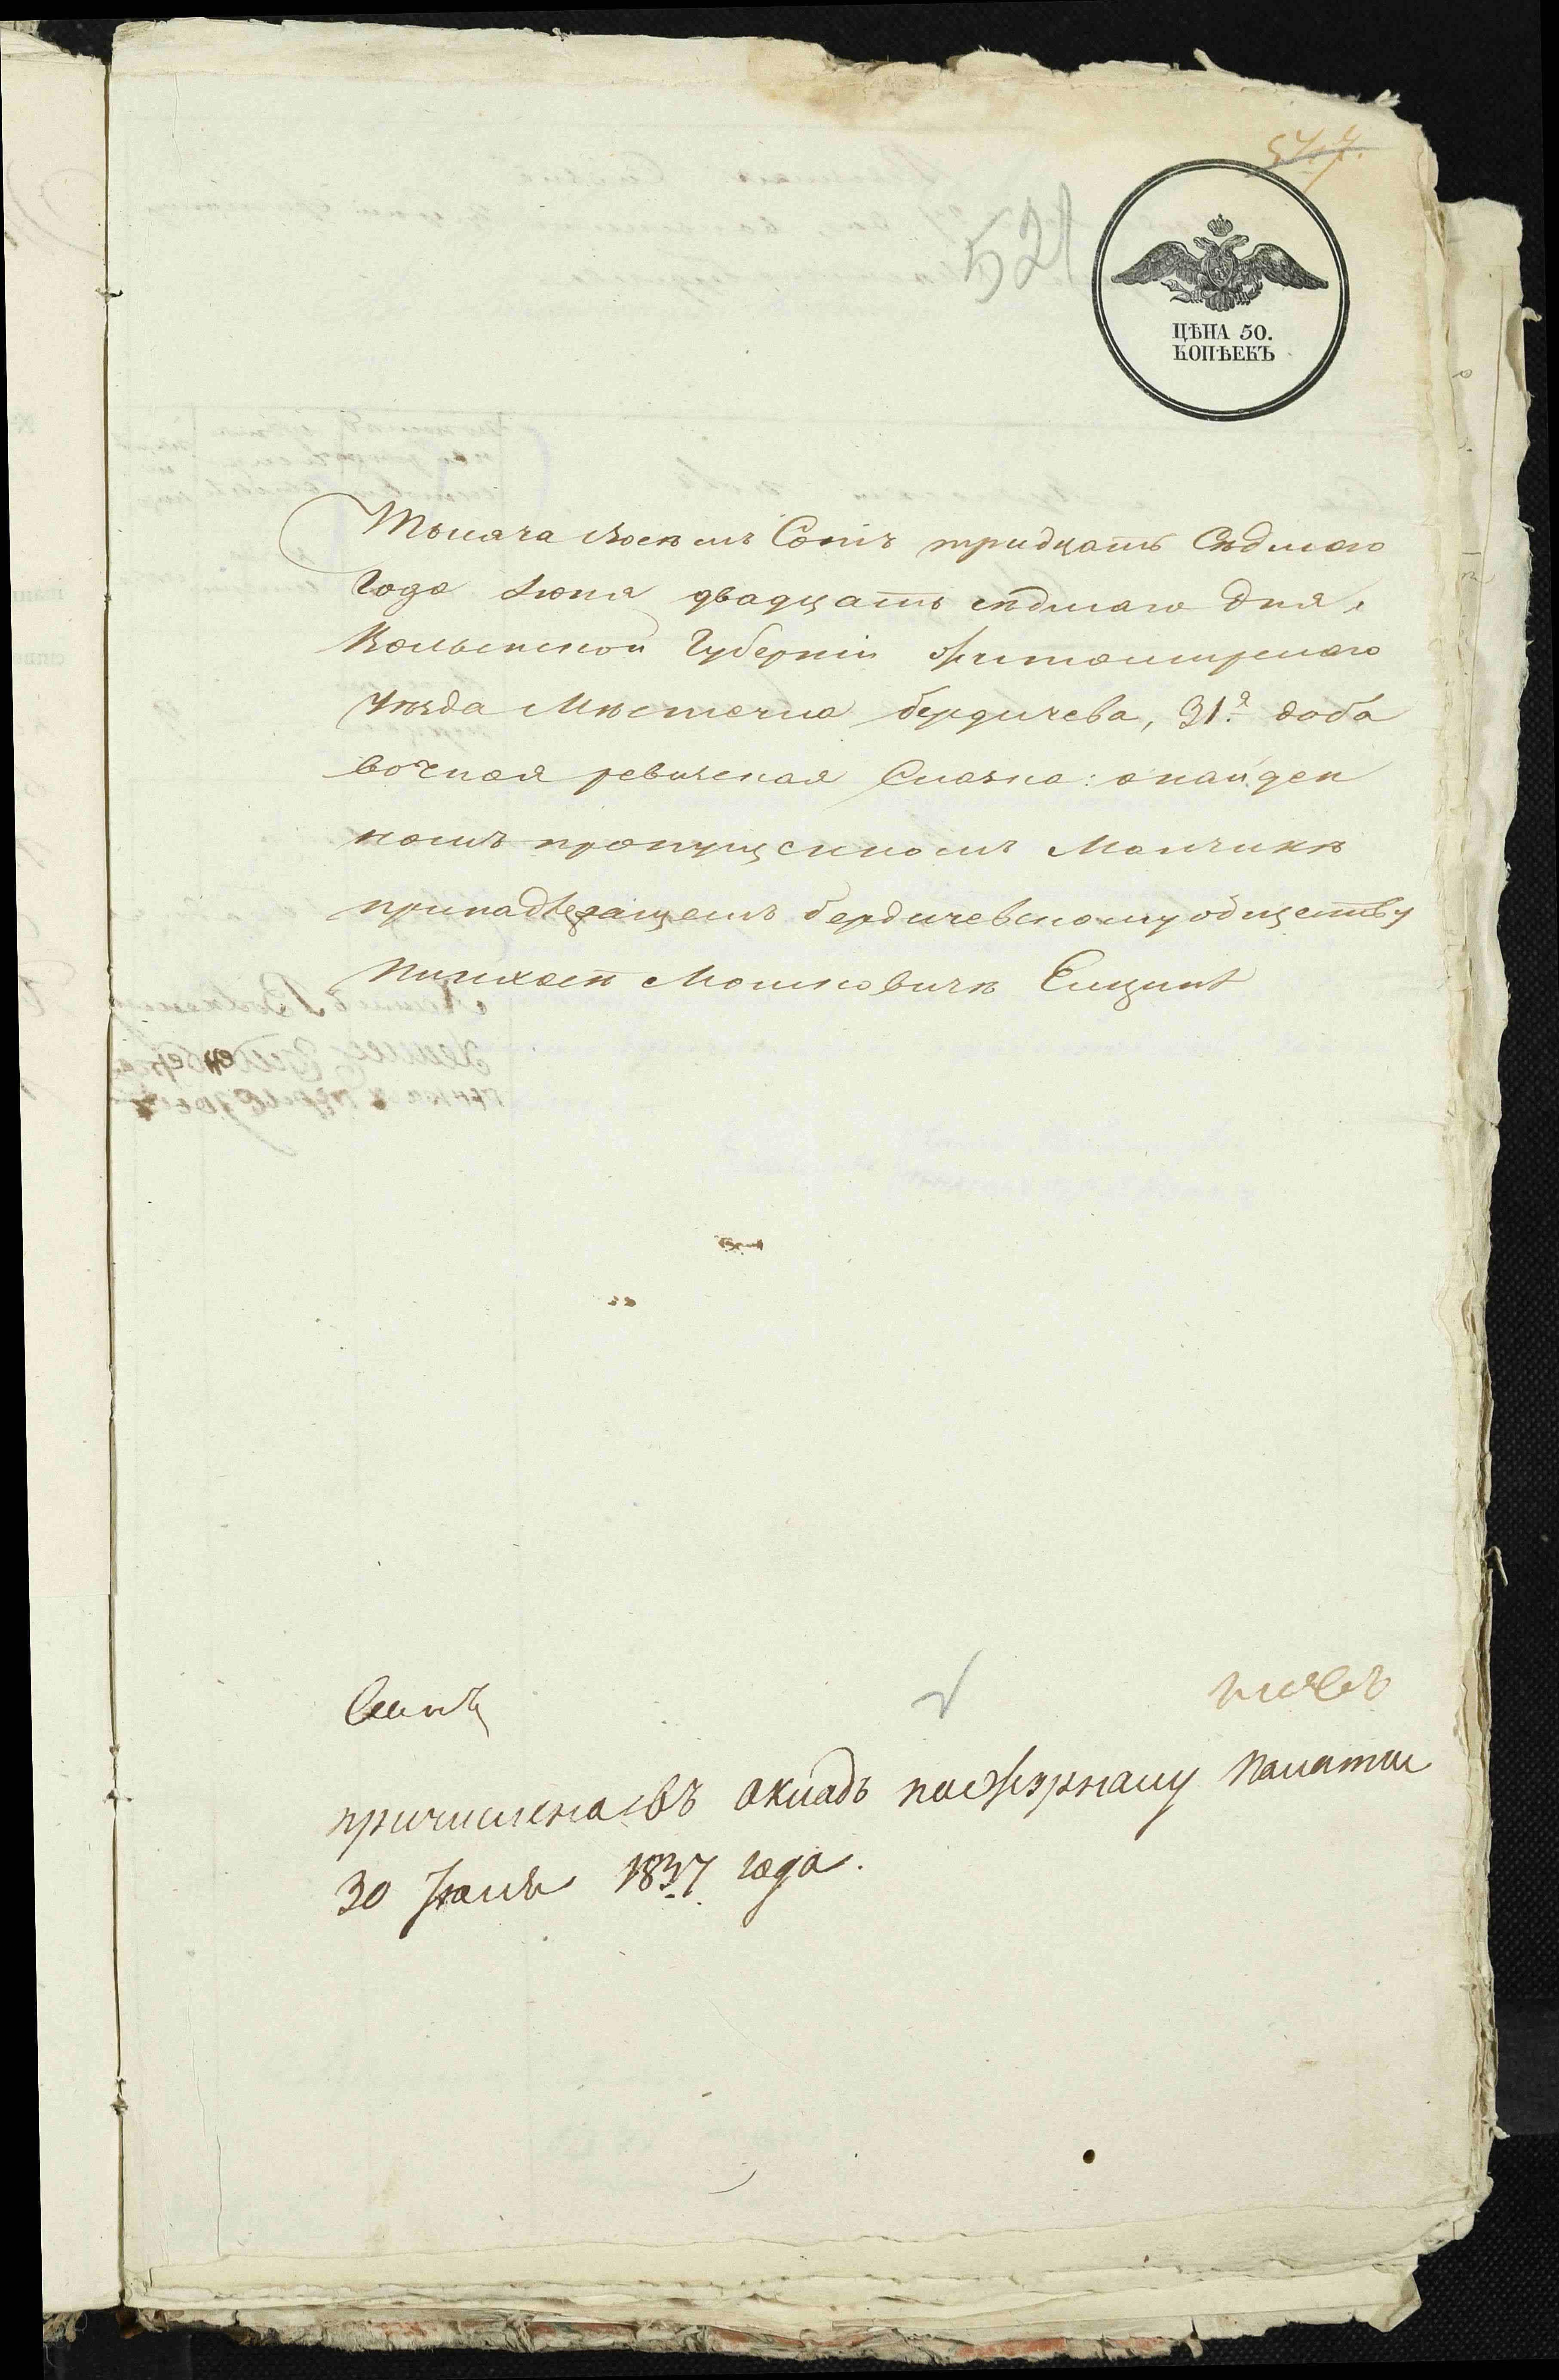 521
ЦѢНА 50.
КОПѢЕКЪ
Тысяча восемъ Сотъ тридцать Седмаго
Года Июня двадцать седмаго дня,
Волынской Губерніи Житомирскаго
Уѣзда Мѣстечка бердичева, 31я доба
вочная ревизская Сказка: о найден
номъ пропущенномъ Мальчикѣ
принадлежащемъ бердичевскому обществу
Пинхасѣ Мошковичѣ
причислена въ окладъ по Журналу Палаты
30 Июля 1837 года.